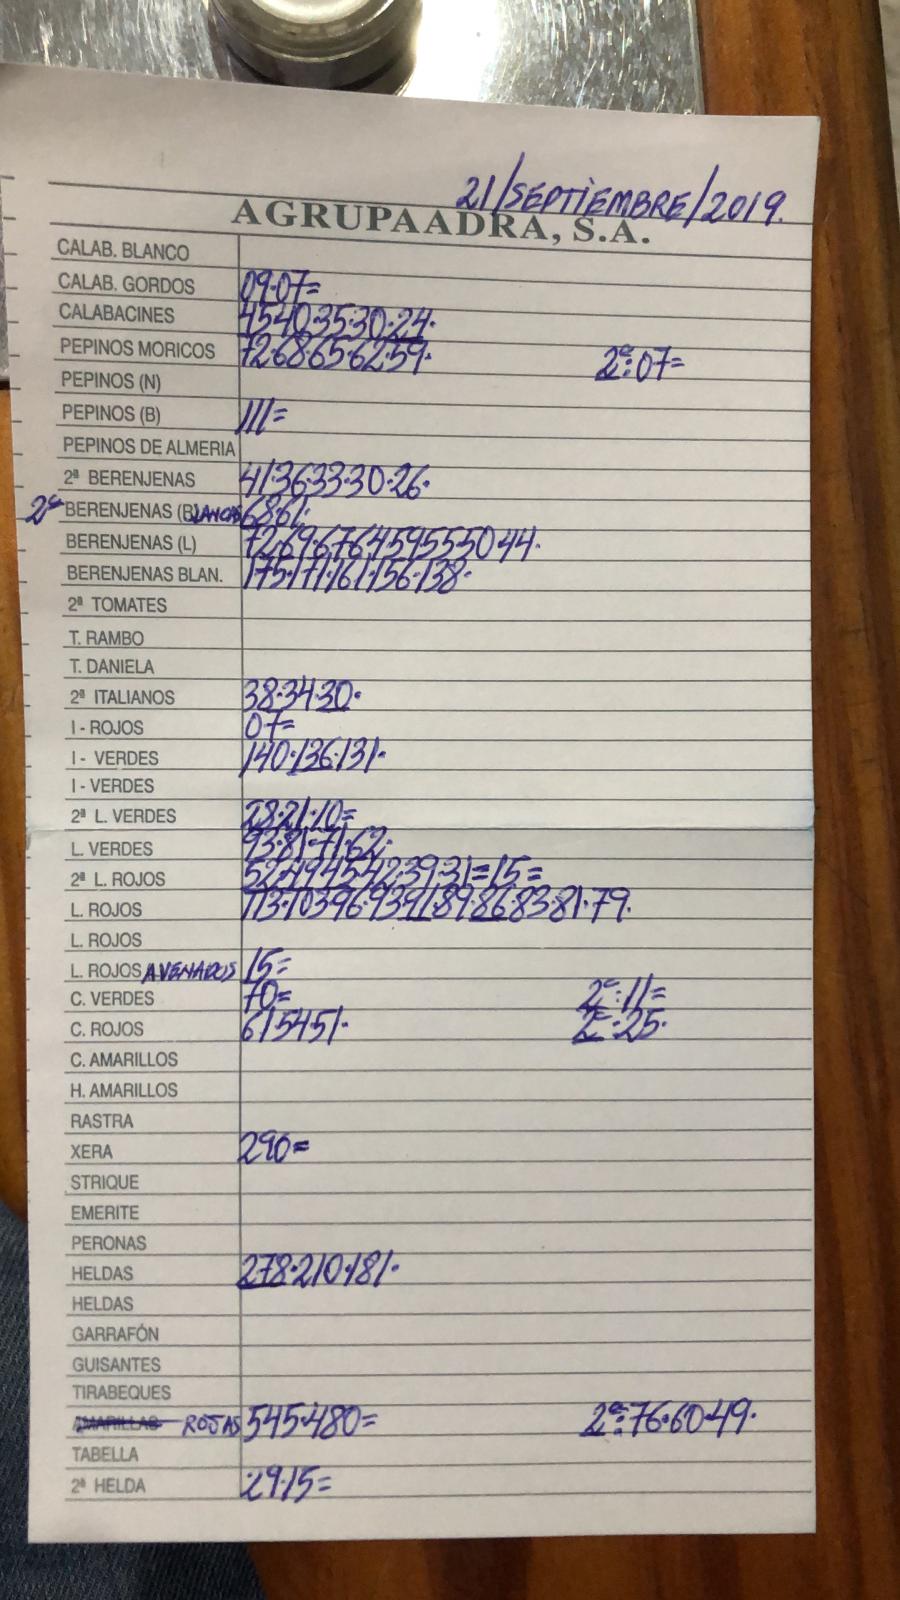 21/SEPTIEMBRE/2019.
AGRUPAADRA, S.A.
CALAB. BLANCO
CALAB. GORDOS 09·07=
CALABACINES 45·40·35·30·24·
PEPINOS MORICOS 72·68·65·62·59· 2ª:07=
PEPINOS (N)
PEPINOS (B) 111=
PEPINOS DE ALMERIA
2ª BERENJENAS 41·36·33·30·26·
2ª BERENJENAS (BLANCAS 68·61·
BERENJENAS (L) 72·69·67·64·59·55·50·44·
BERENJENAS BLAN. 175·171·161·156·138·
2ª TOMATES
T. RAMBO
T. DANIELA
2ª ITALIANOS 38·34·30·
I - ROJOS 07=
I - VERDES 140·136·131·
I - VERDES
2ª L. VERDES 28·21·10=
L. VERDES 93·81·71·62·
2ª L. ROJOS 52·49·45·42·39·31=15=
L. ROJOS 113·103·96·93·91·89·86·83·81·79.
L. ROJOS
L. ROJOS AVENADOS 15=
C. VERDES 70= 2ª:11=
C. ROJOS 61·54·51· 2ª:25·
C. AMARILLOS
H. AMARILLOS
RASTRA
XERA 290=
STRIQUE
EMERITE
PERONAS
HELDAS 278·210·181·
HELDAS
GARRAFÓN
GUISANTES
TIRABEQUES
AMARILLAS ROJAS 545·480= 2ª:76·60·49·
TABELLA
2ª HELDA 29·15=